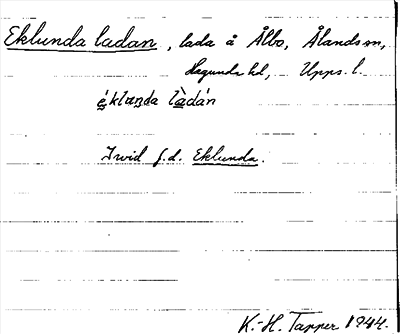 Eklunda ladan, lada å Ålbo, Ålands sn,
Hagunda hd, Upps. l.
éklunda làdán
Invid f.d. Eklunda.
K.-H. Tapper 1944.